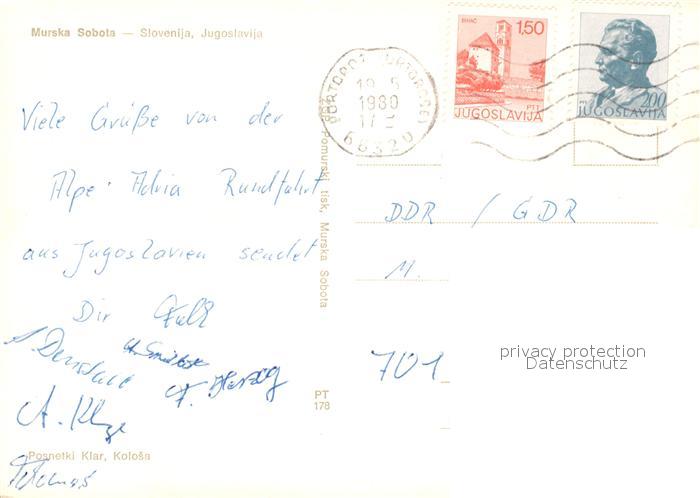 Murska Sobota — Slovenija, Jugoslavija
Viele Grüße von der
Alpe-Adria Rundfahrt
aus Jugoslavien sendet
Dir Falk
F. Herzog
A. Kluge
Posnetki Klar, Kološa
PORTOROŽ PORTOROSE
19. 5
1980
17
66320
BIHAĆ
1,50
PTT
JUGOSLAVIJA
2,00
JUGOSLAVIJA
Pomurski tisk, Murska Sobota
PT
178
DDR / GDR
M.
701
privacy protection
Datenschutz